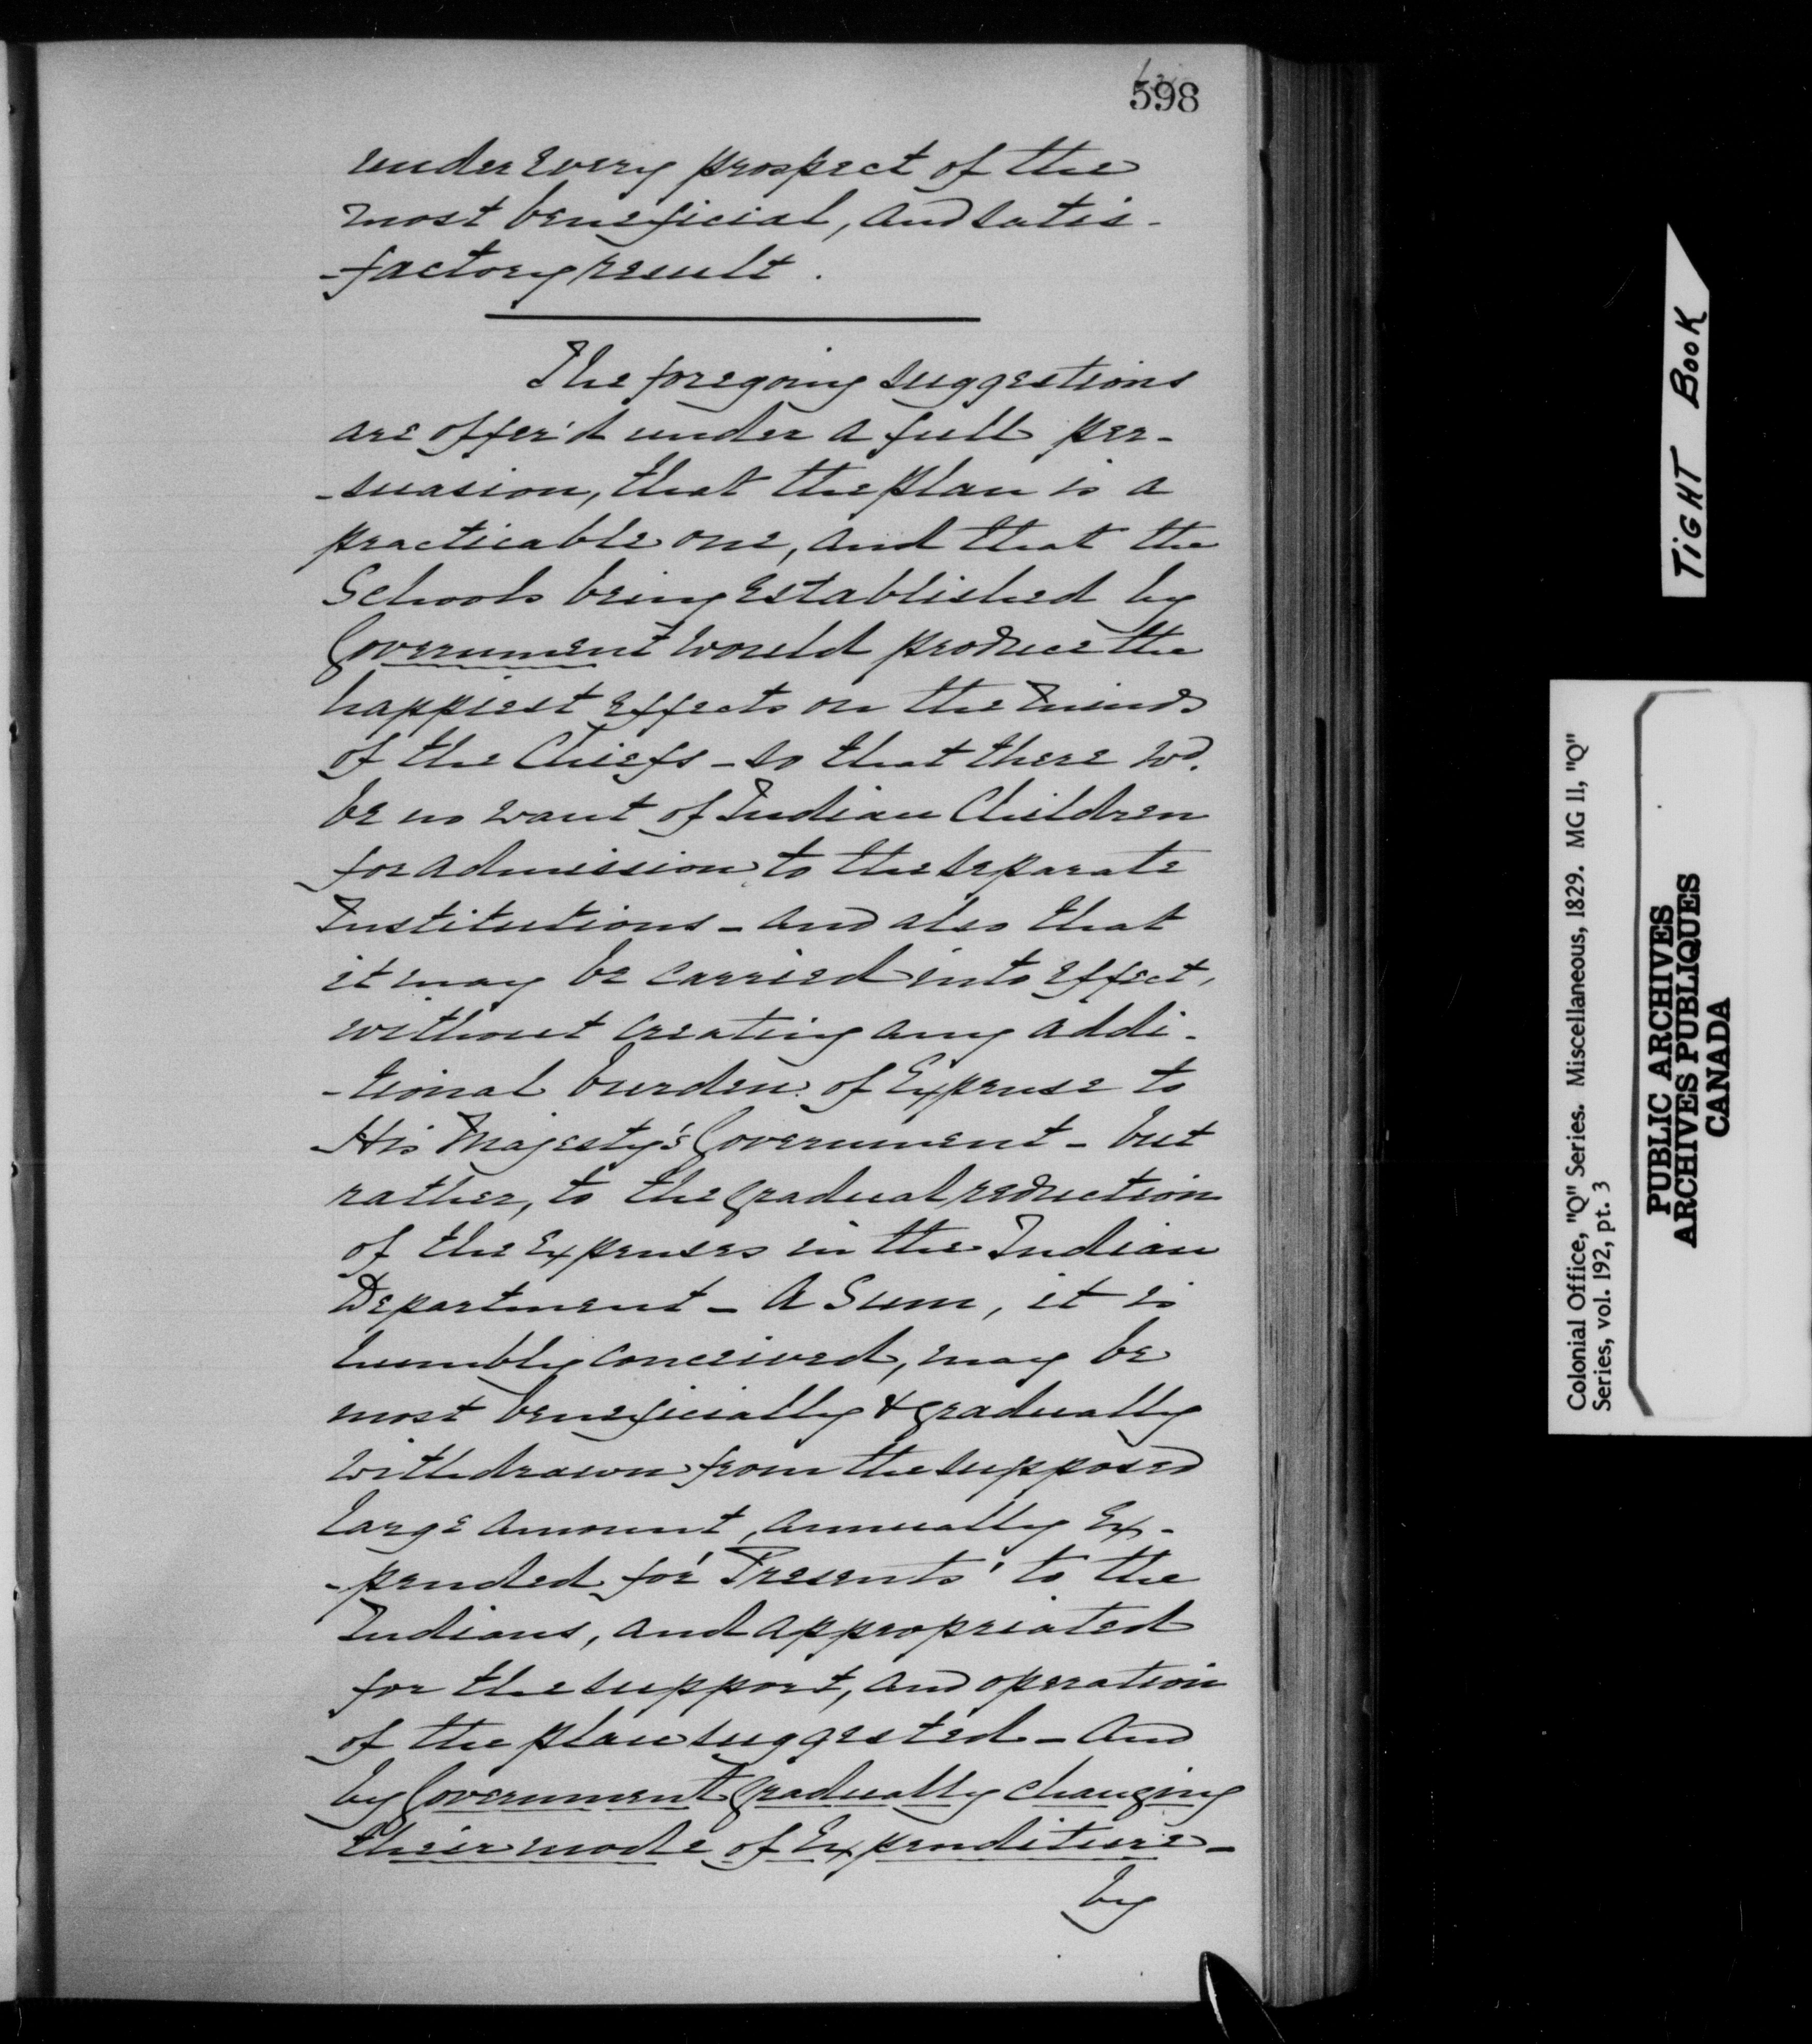 598
under every prospect of the
most beneficial, and satis-
-factory result.
The foregoing suggestions
are offer'd under a full per-
-suasion, that the plan is a
practicable one, and that the
Schools being established by
Government would produce the
happiest effects on the minds
of the Chiefs - so that there wd.
be no want of Indian Children
for admission to the separate
Institutions - and also that
it may be carried into effect,
without creating any addi-
-tional burden of Expense to
His Majesty's Government - but
rather, to the gradual reduction
of the Expenses in the Indian
Department - A Sum, it is
humbly conceived, may be
most beneficially & gradually
withdrawn from the supposed
large amount, annually Ex-
-pended for 'Presents' to the
Indians, and appropriated
for the support, and operation
of the plan suggested - and
by Government gradually changing
their mode of Expenditure -
by
TIGHT BOOK
Colonial Office, "Q" Series. Miscellaneous, 1829. MG 11, "Q"
Series, vol. 192, pt. 3
PUBLIC ARCHIVES
ARCHIVES PUBLIQUES
CANADA